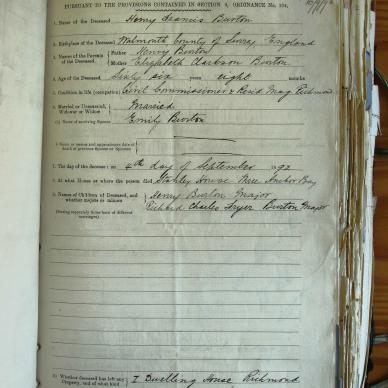 PURSUANT TO THE PROVISIONS CONTAINED IN SECTION 8, ORDINANCE No. 104,
1. Name of the Deceased Henry Francis Burton
2. Birthplace of the Deceased Walmouth County of Surrey England
3. Names of the Parents of the Deceased. Father Henry Burton
Mother Elizabeth Clarkson Burton
4. Age of the Deceased Sixty six years eight months
5. Condition in life (occupation) Civil Commissioner & Resid Mag Richmond
6. Married or Unmarried, Widower or Widow Married
Name of surviving Spouse Emily Burton
Name or names and approximate date of death of previous Spouse or Spouses
7. The day of the decease: on 4th day of September 1892
8. At what House or where the person died Stanley House Three Anchor Bay
9. Names of Children of Deceased, and whether majors or minors Henry Burton Major
Richard Charles Fryer Burton Major
(Stating separately those born of different marriages)
Whether deceased has left any Property, and of what kind 1 Dwelling House Richmond